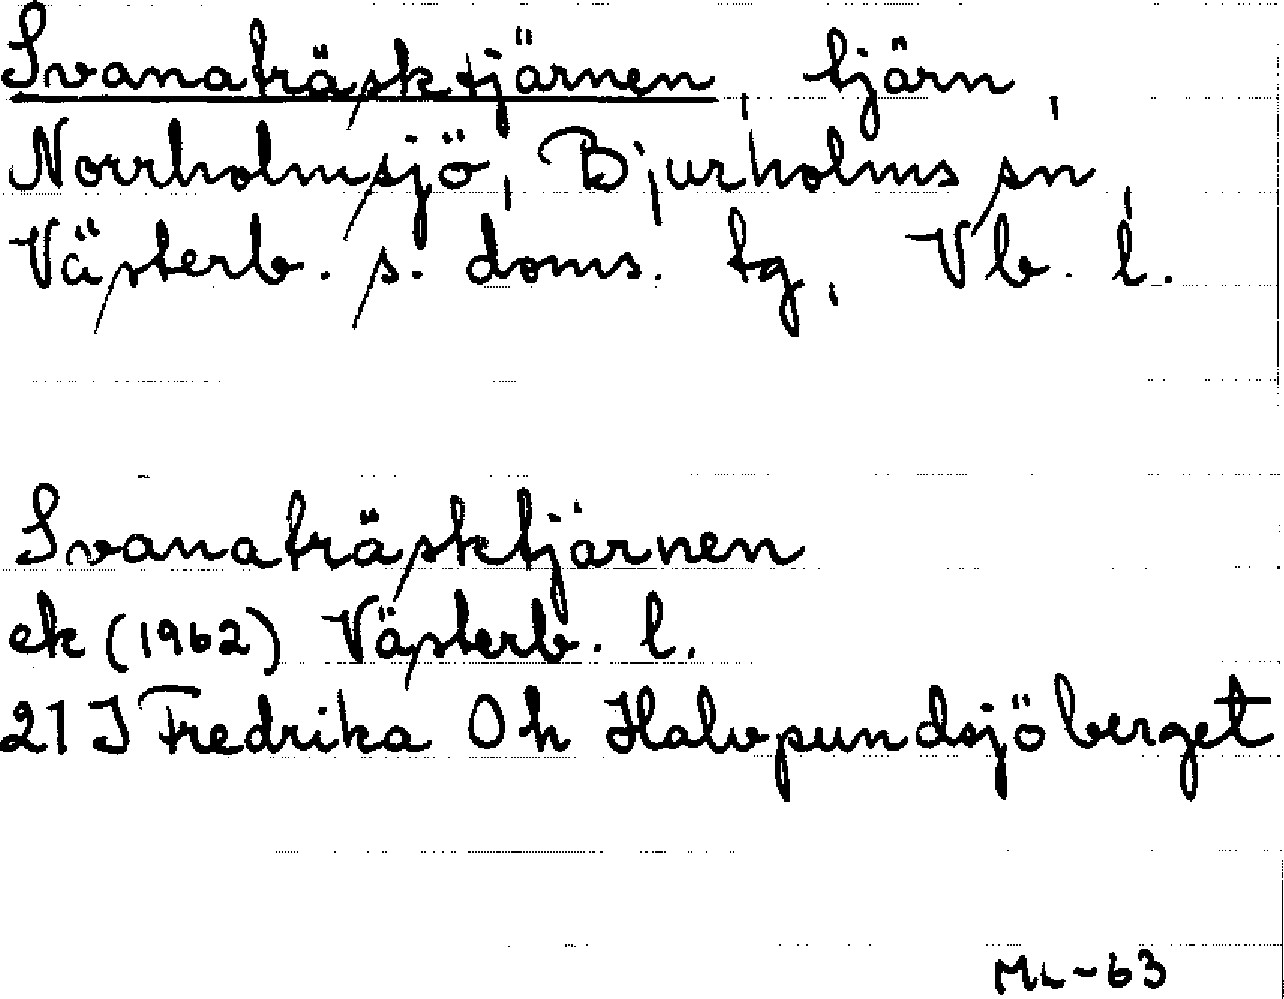 Svanaträsktjärnen, tjärn,
Norrholmsjö, Bjurholms sn,
Västerb. s. doms. tg, Vb. l.
Svanaträsktjärnen
ek (1962) Västerb. l.
21 J Fredrika 0 h Halvpundsjöberget
ML-63